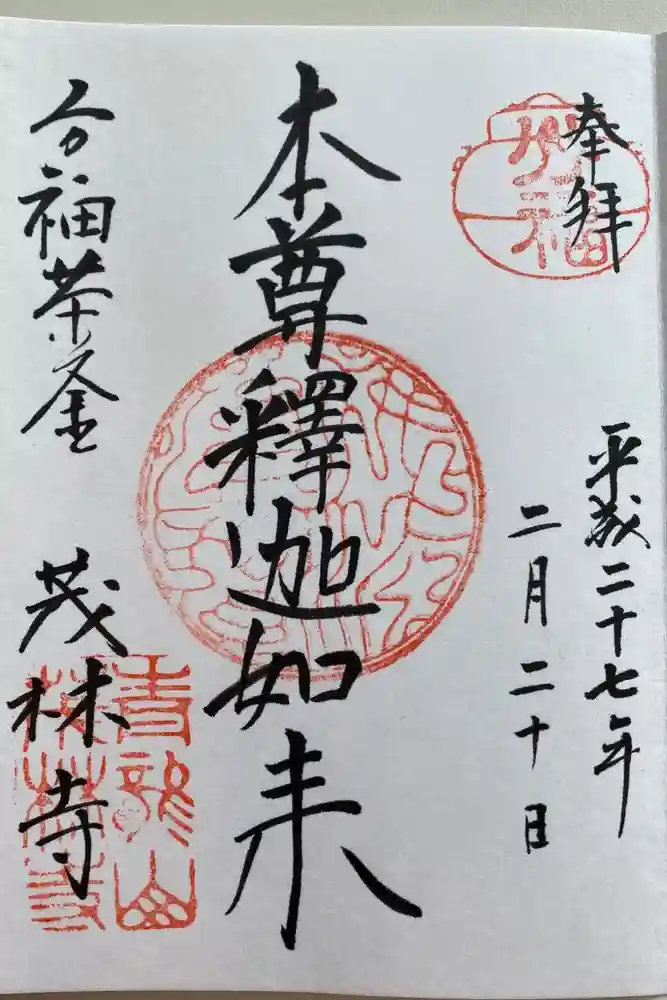 奉拝
平成二十七年
二月二十日
本尊釋迦如来
分福茶釜
茂林寺
分福
青龍山
茂林寺